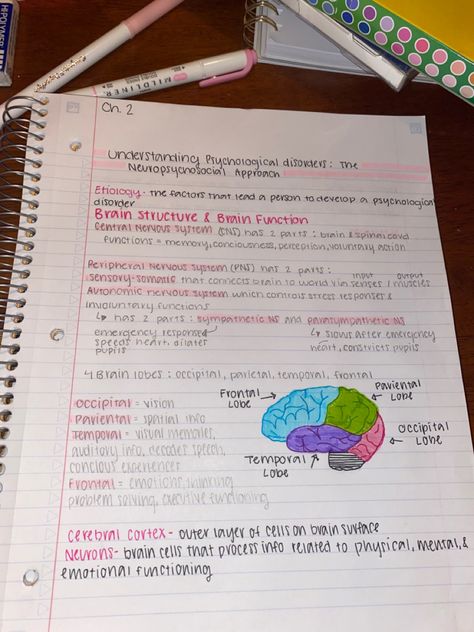 HI-POLYMER
MILDLINER
Ch. 2
Understanding Psychological disorders: The
Neuropsychosocial Approach
Etiology - the factors that lead a person to develop a psychological
disorder
Brain Structure & Brain Function
Central Nervous System (CNS) has 2 parts: brain & spinal cord
functions = memory, conciousness, perception, voluntary action
Peripheral Nervous System (PNS) has 2 parts:
sensory-somatic that connects brain to world via senses / muscles
input output
Autonomic nervous system which controls stress responses &
involuntary functions
↳ has 2 parts: sympathetic NS and parasympathetic NS
emergency response ↳ slows after emergency
speeds heart, dilates heart, constricts pupils
pupils
4 Brain lobes: occipital, parietal, temporal, frontal
Frontal Lobe
Pariental Lobe
Occipital = vision
Pariental = spatial info
Temporal = visual memories,
auditory info, decodes speech,
concious experiences
Occipital Lobe
Temporal Lobe
Frontal = emotions, thinking
problem solving, executive functioning
cerebral cortex - outer layer of cells on brain surface
Neurons - brain cells that process info related to physical, mental, &
emotional functioning